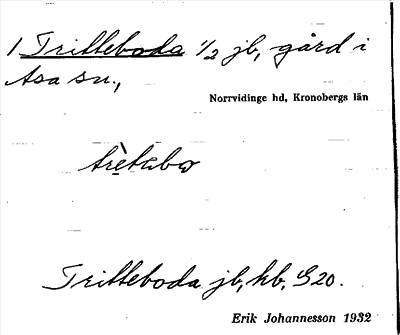 1 Tritteboda 1/2 jb, gård i
Asa sn.,
Norrvidinge hd, Kronobergs län
Tritteboda jb, kb, G20.
Erik Johannesson 1932